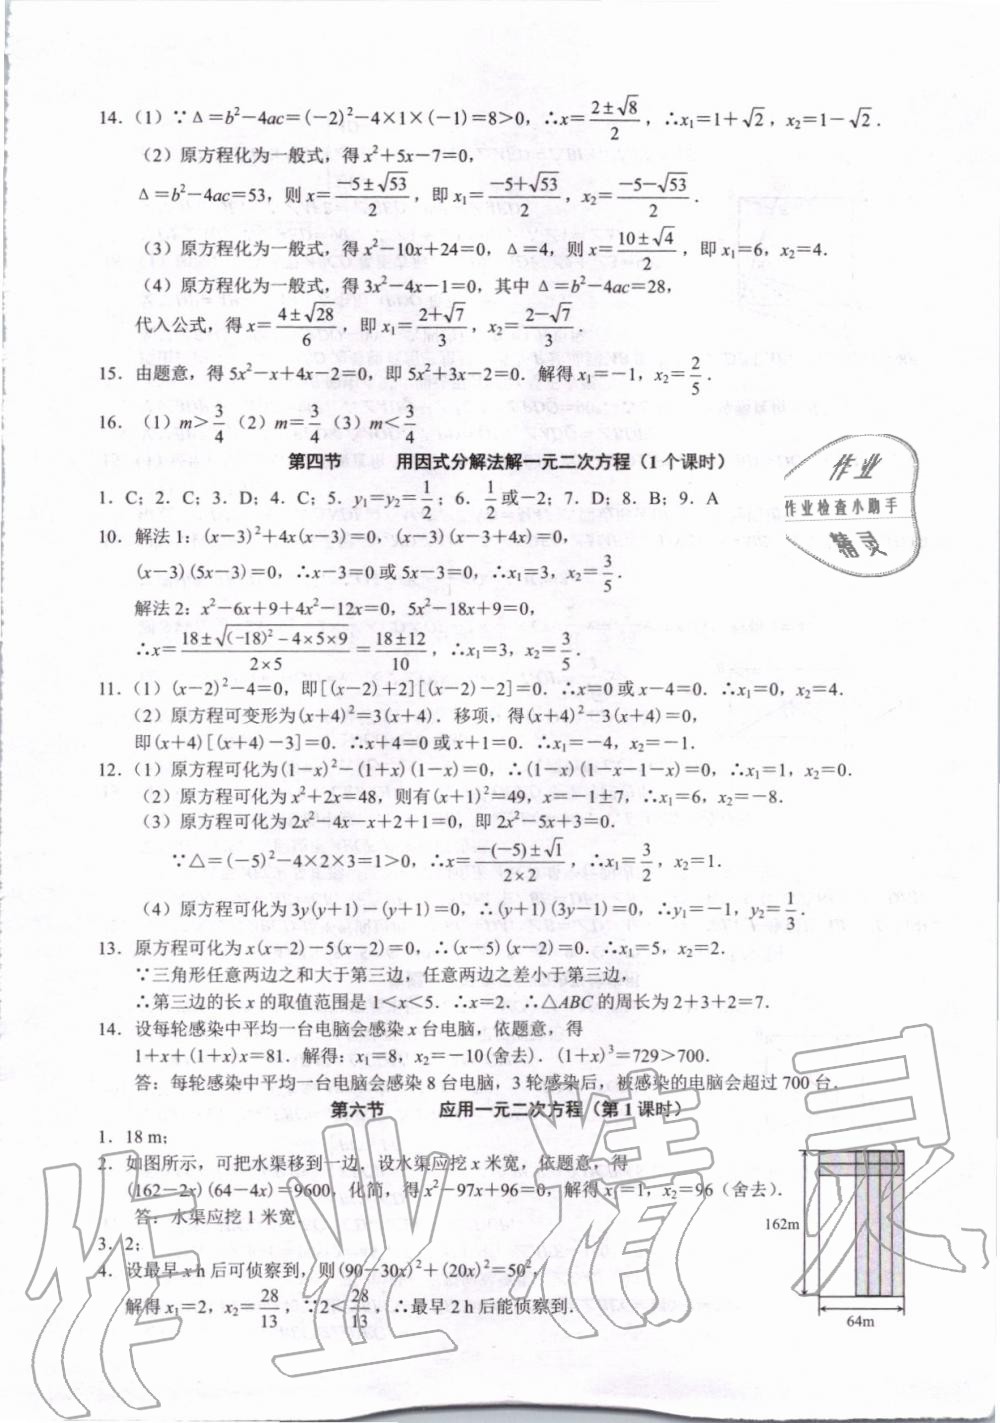 14. (1) ∵Δ=b²-4ac=(-2)²-4×1×(-1)=8>0, ∴x=(2±√8)/2, ∴x₁=1+√2, x₂=1-√2.
(2) 原方程化为一般式，得 x²+5x-7=0,
Δ=b²-4ac=53, 则 x=(-5±√53)/2, 即 x₁=(-5+√53)/2, x₂=(-5-√53)/2.
(3) 原方程化为一般式，得 x²-10x+24=0, Δ=4, 则 x=(10±√4)/2, 即 x₁=6, x₂=4.
(4) 原方程化为一般式，得 3x²-4x-1=0, 其中 Δ=b²-4ac=28,
代入公式，得 x=(4±√28)/6, 即 x₁=(2+√7)/3, x₂=(2-√7)/3.
15. 由题意，得 5x²-x+4x-2=0, 即 5x²+3x-2=0. 解得 x₁=-1, x₂=2/5.
16. (1) m>3/4 (2) m=3/4 (3) m<3/4
第四节 用因式分解法解一元二次方程（1 个课时）
1. C; 2. C; 3. D; 4. C; 5. y₁=y₂=1/2; 6. 1/2 或-2; 7. D; 8. B; 9. A
10. 解法 1: (x-3)²+4x(x-3)=0, (x-3)(x-3+4x)=0,
(x-3)(5x-3)=0, ∴x-3=0 或 5x-3=0, ∴x₁=3, x₂=3/5.
解法 2: x²-6x+9+4x²-12x=0, 5x²-18x+9=0,
∴x=(18±√((-18)²-4×5×9))/(2×5)=(18±12)/10, ∴x₁=3, x₂=3/5.
11. (1) (x-2)²-4=0, 即[(x-2)+2][(x-2)-2]=0. ∴x=0 或 x-4=0. ∴x₁=0, x₂=4.
(2) 原方程可变形为(x+4)²=3(x+4). 移项，得(x+4)²-3(x+4)=0,
即(x+4)[(x+4)-3]=0. ∴x+4=0 或 x+1=0. ∴x₁=-4, x₂=-1.
12. (1) 原方程可化为(1-x)²-(1+x)(1-x)=0, ∴(1-x)(1-x-1-x)=0, ∴x₁=1, x₂=0.
(2) 原方程可化为 x²+2x=48, 则有(x+1)²=49, x=-1±7, ∴x₁=6, x₂=-8.
(3) 原方程可化为 2x²-4x-x+2+1=0, 即 2x²-5x+3=0.
∵△=(-5)²-4×2×3=1>0, ∴x=(-(-5)±√1)/(2×2), ∴x₁=3/2, x₂=1.
(4) 原方程可化为 3y(y+1)-(y+1)=0, ∴(y+1)(3y-1)=0, ∴y₁=-1, y₂=1/3.
13. 原方程可化为 x(x-2)-5(x-2)=0, ∴(x-5)(x-2)=0. ∴x₁=5, x₂=2.
∵三角形任意两边之和大于第三边，任意两边之差小于第三边，
∴第三边的长 x 的取值范围是 1<x<5. ∴x=2. ∴△ABC 的周长为 2+3+2=7.
14. 设每轮感染中平均一台电脑会感染 x 台电脑，依题意，得
1+x+(1+x)x=81. 解得: x₁=8, x₂=-10(舍去). (1+x)³=729>700.
答：每轮感染中平均一台电脑会感染 8 台电脑，3 轮感染后，被感染的电脑会超过 700 台.
第六节 应用一元二次方程（第 1 课时）
1. 18 m;
2. 如图所示，可把水渠移到一边. 设水渠应挖 x 米宽，依题意，得
(162-2x)(64-4x)=9600, 化简，得 x²-97x+96=0, 解得 x₁=1, x₂=96（舍去）.
答：水渠应挖 1 米宽
3. 2;
4. 设最早 x h 后可侦察到，则(90-30x)²+(20x)²=50²,
解得 x₁=2, x₂=28/13, ∵2<28/13 ∴最早 2 h 后能侦察到.
162m
64m
作业
作业检查小助手
精灵
作业精灵